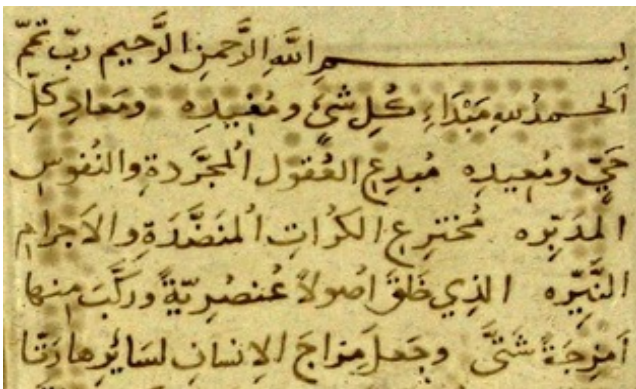 بسم الله الرَّحمنِ الرَّحيم ربّ تمّم
اَلحمدُ للهِ مَبْدَاءِ كُلِ شیٍٔ ومُفِيدِه ومَعادِ كلِّ
حَيّ ومُعِيدِه مُبدِعِ العُقول المُجرَّدةِ والنُفوسِ
المُدَبِّره مُخترِعِ الكُراتِ المُنَضَّدَةِ والاَجرامِ
النَّيِّره الذِي خَلَقَ اصُولاً عُنصُرِيّةً ورَكَّبَ مِنها
اَمزِجَةً شتَّى وجَعلَ مِزاجَ الاِنسانِ لسَايُرِها رَتقا